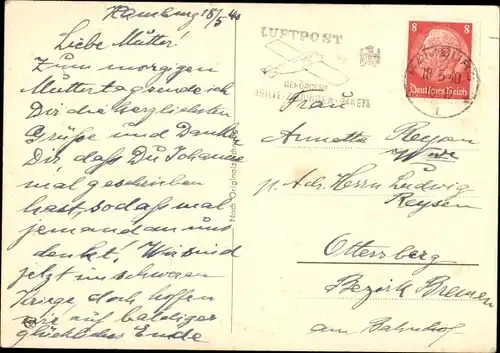 Hamburg 18/5 40
Liebe Mutter!
Zum morgigen
Muttertag sende ich
Dir die herzlichsten
Grüße und Danke
Dir, daß Du Johanne
mal geschrieben
hast, so daß mal
jemand an uns
denkt! Wir sind
jetzt im schweren
Kriege, doch hoffen
wir auf baldiges
glückliches Ende
Nach Originalzeichnung
LUFTPOST
BEFÖRDERT
BRIEFE ZEITUNGEN PAKETE
8 8
Deutsches Reich
18.5.40
Frau
Annette Reysen
Wwe
p. Adr. Herrn Ludwig
Reysen
Ottersberg
Bezirk Bremen
am Bahnhof